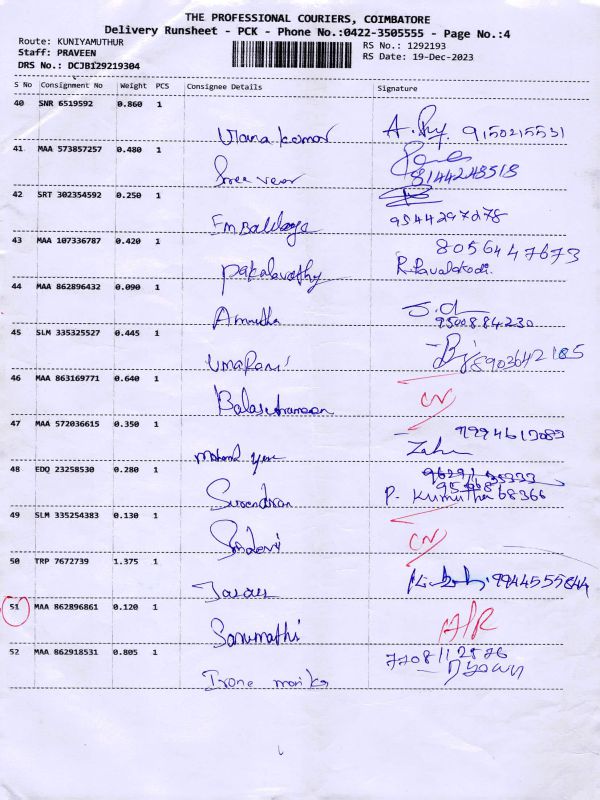 THE PROFESSIONAL COURIERS, COIMBATORE
Delivery Runsheet - PCK - Phone No.:0422-3505555 - Page No.:4
Route: KUNIYAMUTHUR
Staff: PRAVEEN
DRS No.: DCJB129219304
RS No.: 1292193
RS Date: 19-Dec-2023
S No Consignment No Weight PCS Consignee Details Signature
40 SNR 6519592 0.860 1
9150215531
41 MAA 573857257 0.480 1
Sree veer 8144248518
42 SRT 302354592 0.250 1
9544297278
43 MAA 107336787 0.420 1
8056447673
44 MAA 862896432 0.090 1
Amrutha
9500884230
45 SLM 335325527 0.445 1
UmaRani 8903642185
46 MAA 863169771 0.640 1
CN
47 MAA 572036615 0.350 1
48 EDQ 23258530 0.280 1
Surendran P. Kumutha 68366
49 SLM 335254383 0.130 1
CN
50 TRP 7672739 1.375 1
9944555844
51 MAA 862896861 0.120 1
Sanumathi A/R
52 MAA 862918531 0.805 1
7708112876
monika